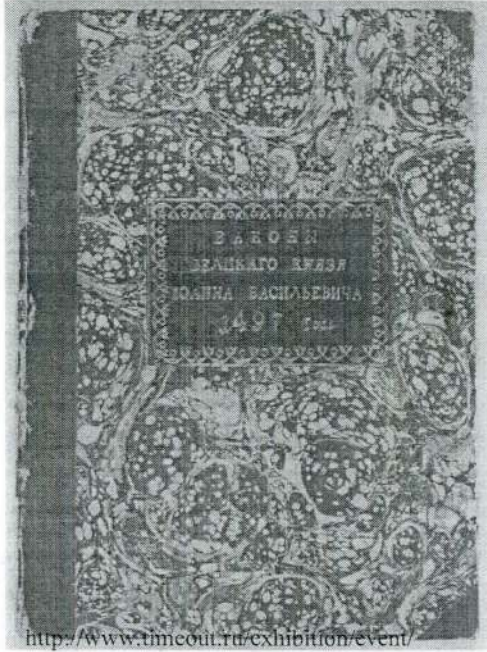 ЗАКОНЫ
ВЕЛИКАГО КНЯЗЯ
ІОАННА ВАСИЛЬЕВИЧА
1497 Года
http://www.timeout.ru/exhibition/event/